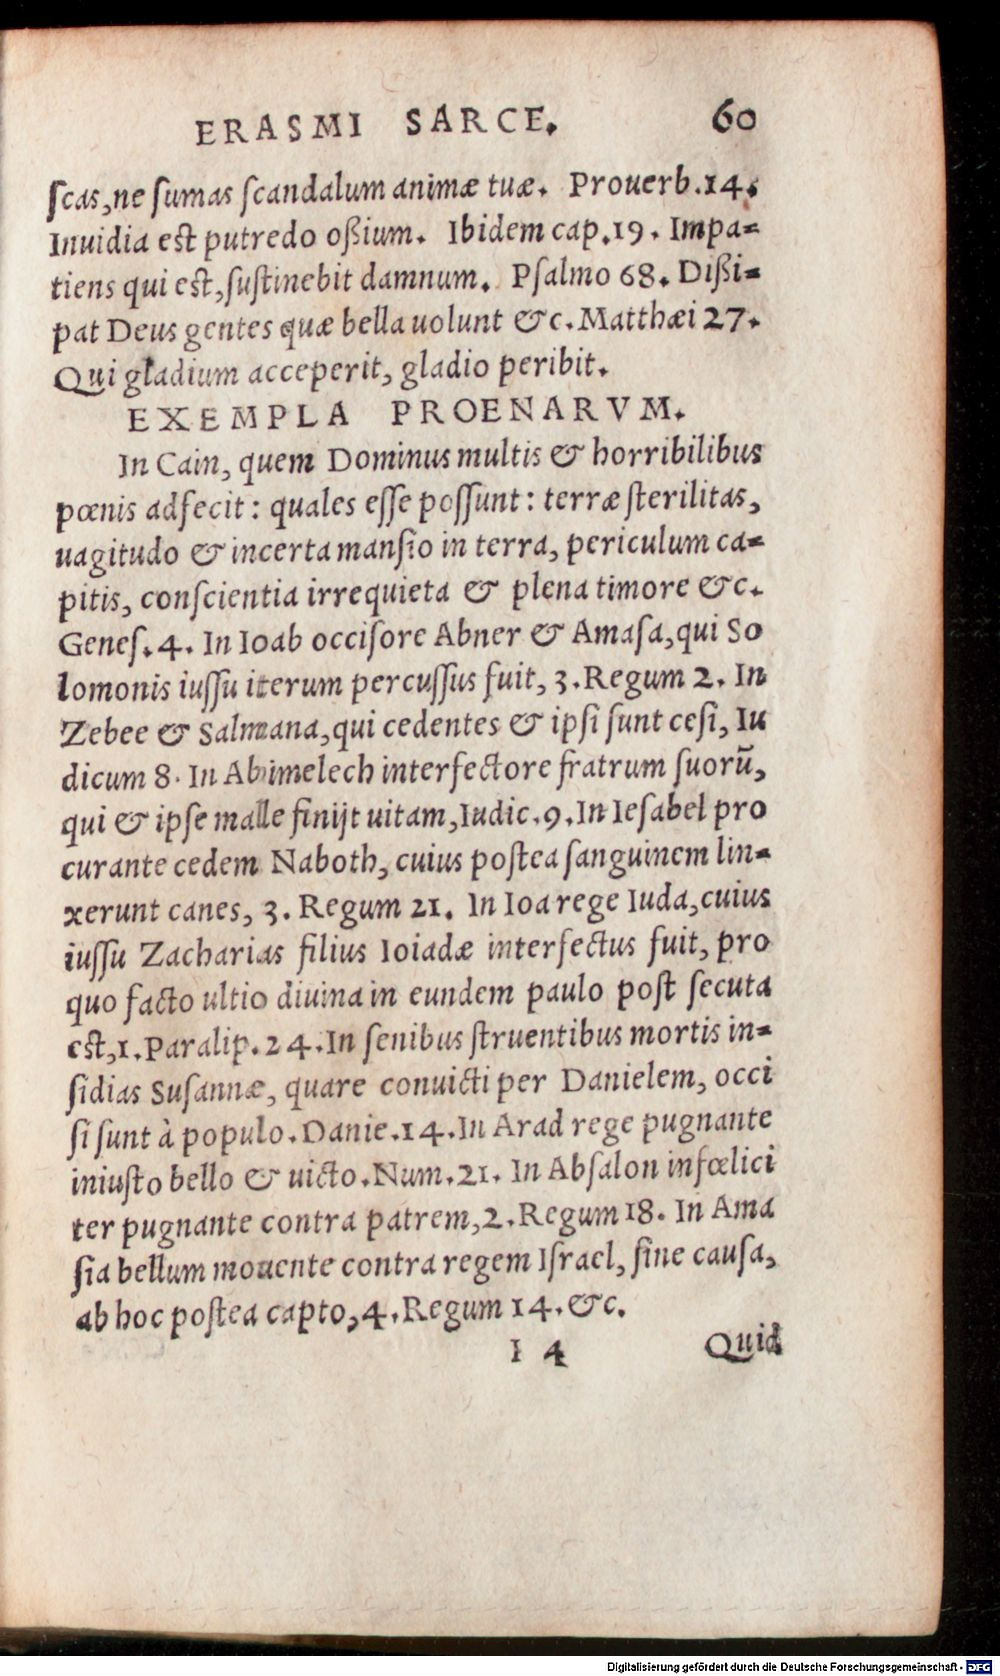 ERASMI SARCE. 60
ſcas, ne ſumas ſcandalum animæ tuæ. Prouerb. 14.
Inuidia eſt putredo oßium. Ibidem cap. 19. Impa-
tiens qui eſt, ſuſtinebit damnum. Pſalmo 68. Dißi-
pat Deus gentes quæ bella uolunt &c. Matthæi 27.
Qui gladium acceperit, gladio peribit.
EXEMPLA PROENARVM.
In Cain, quem Dominus multis & horribilibus
pœnis adfecit: quales eſſe poſſunt: terræ ſterilitas,
uagitudo & incerta manſio in terra, periculum ca-
pitis, conſcientia irrequieta & plena timore &c.
Geneſ. 4. In Ioab occiſore Abner & Amaſa, qui So
lomonis iuſſu iterum percuſſus fuit, 3. Regum 2. In
Zebee & Salmana, qui cedentes & ipſi ſunt ceſi, Iu
dicum 8. In Abimelech interfectore fratrum ſuorũ,
qui & ipſe malle finijt uitam, Iudic. 9. In Ieſabel pro
curante cedem Naboth, cuius poſtea ſanguinem lin-
xerunt canes, 3. Regum 21. In Ioa rege Iuda, cuius
iuſſu Zacharias filius Ioiadæ interfectus fuit, pro
quo facto ultio diuina in eundem paulo poſt ſecuta
eſt, 1. Paralip. 24. In ſenibus ſtruentibus mortis in-
ſidias Suſannæ, quare conuicti per Danielem, occi
ſi ſunt à populo. Danie. 14. In Arad rege pugnante
iniuſto bello & uicto. Num. 21. In Abſalon infœlici
ter pugnante contra patrem, 2. Regum 18. In Ama
ſia bellum mouente contra regem Iſrael, ſine cauſa,
ab hoc poſtea capto, 4. Regum 14. &c.
I 4 Quid
Digitalisierung gefördert durch die Deutsche Forschungsgemeinschaft - DFG